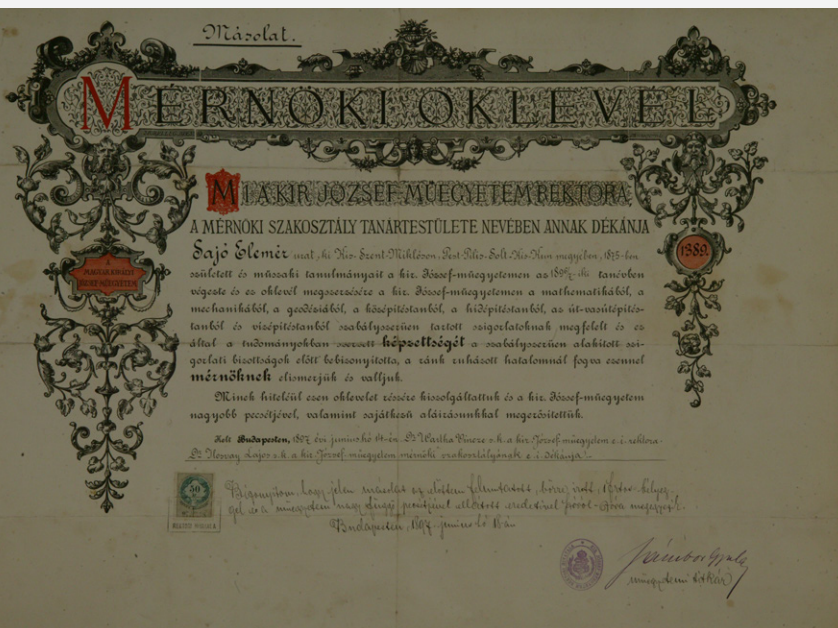 Másolat.
MÉRNÖKI OKLEVÉL
MI A KIR. JÓZSEF-MŰEGYETEM REKTORA,
A MÉRNÖKI SZAKOSZTÁLY TANÁRTESTÜLETE NEVÉBEN ANNAK DÉKÁNJA
Sajó Elemér urat, ki Kis-Szent-Miklóson, Pest-Pilis-Solt-Kis-Kun megyében, 1875-ben
született és műszaki tanulmányait a kir. József-műegyetemen az 1896/7-iki tanévben
végezte és ez oklevél megszerzésére a kir. József-műegyetemen a mathematikából, a
mechanikából, a geodéziából, a középítéstanból, a hídépítéstanból, az út-vasútépítés-
tanból és vízépítéstanból szabályszerűen tartott szigorlatoknak megfelelt és ez
által a tudományokban szerzett képzettségét a szabályszerűen alakított szi-
gorlati bizottságok előtt bebizonyította, a ránk ruházott hatalomnál fogva ezennel
mérnöknek elismerjük és valljuk.
Minek hiteléül ezen oklevelet részére kiszolgáltattuk és a kir. József-műegyetem
nagyobb pecsétjével, valamint sajátkezű aláírásunkkal megerősítettük.
Kelt Budapesten, 1897 évi június hó Dr Wartha Vincze s.k. a kir. József műegyetem e. i. rektora
Dr Ilosvay Lajos s.k. a kir. József-műegyetem mérnöki szakosztályának e. i. dékánja
A
MAGYAR KIRÁLYI
JÓZSEF-MŰEGYETEM
1389
50
Bizonyítom, hogy jelen másolat az előttem felmutatott,
gel és a műegyetem nagy függő pecsétjével ellátott eredetivel szóról-szóra megegyezik.
Budapesten, 1897. június hó
műegyetemi titkár